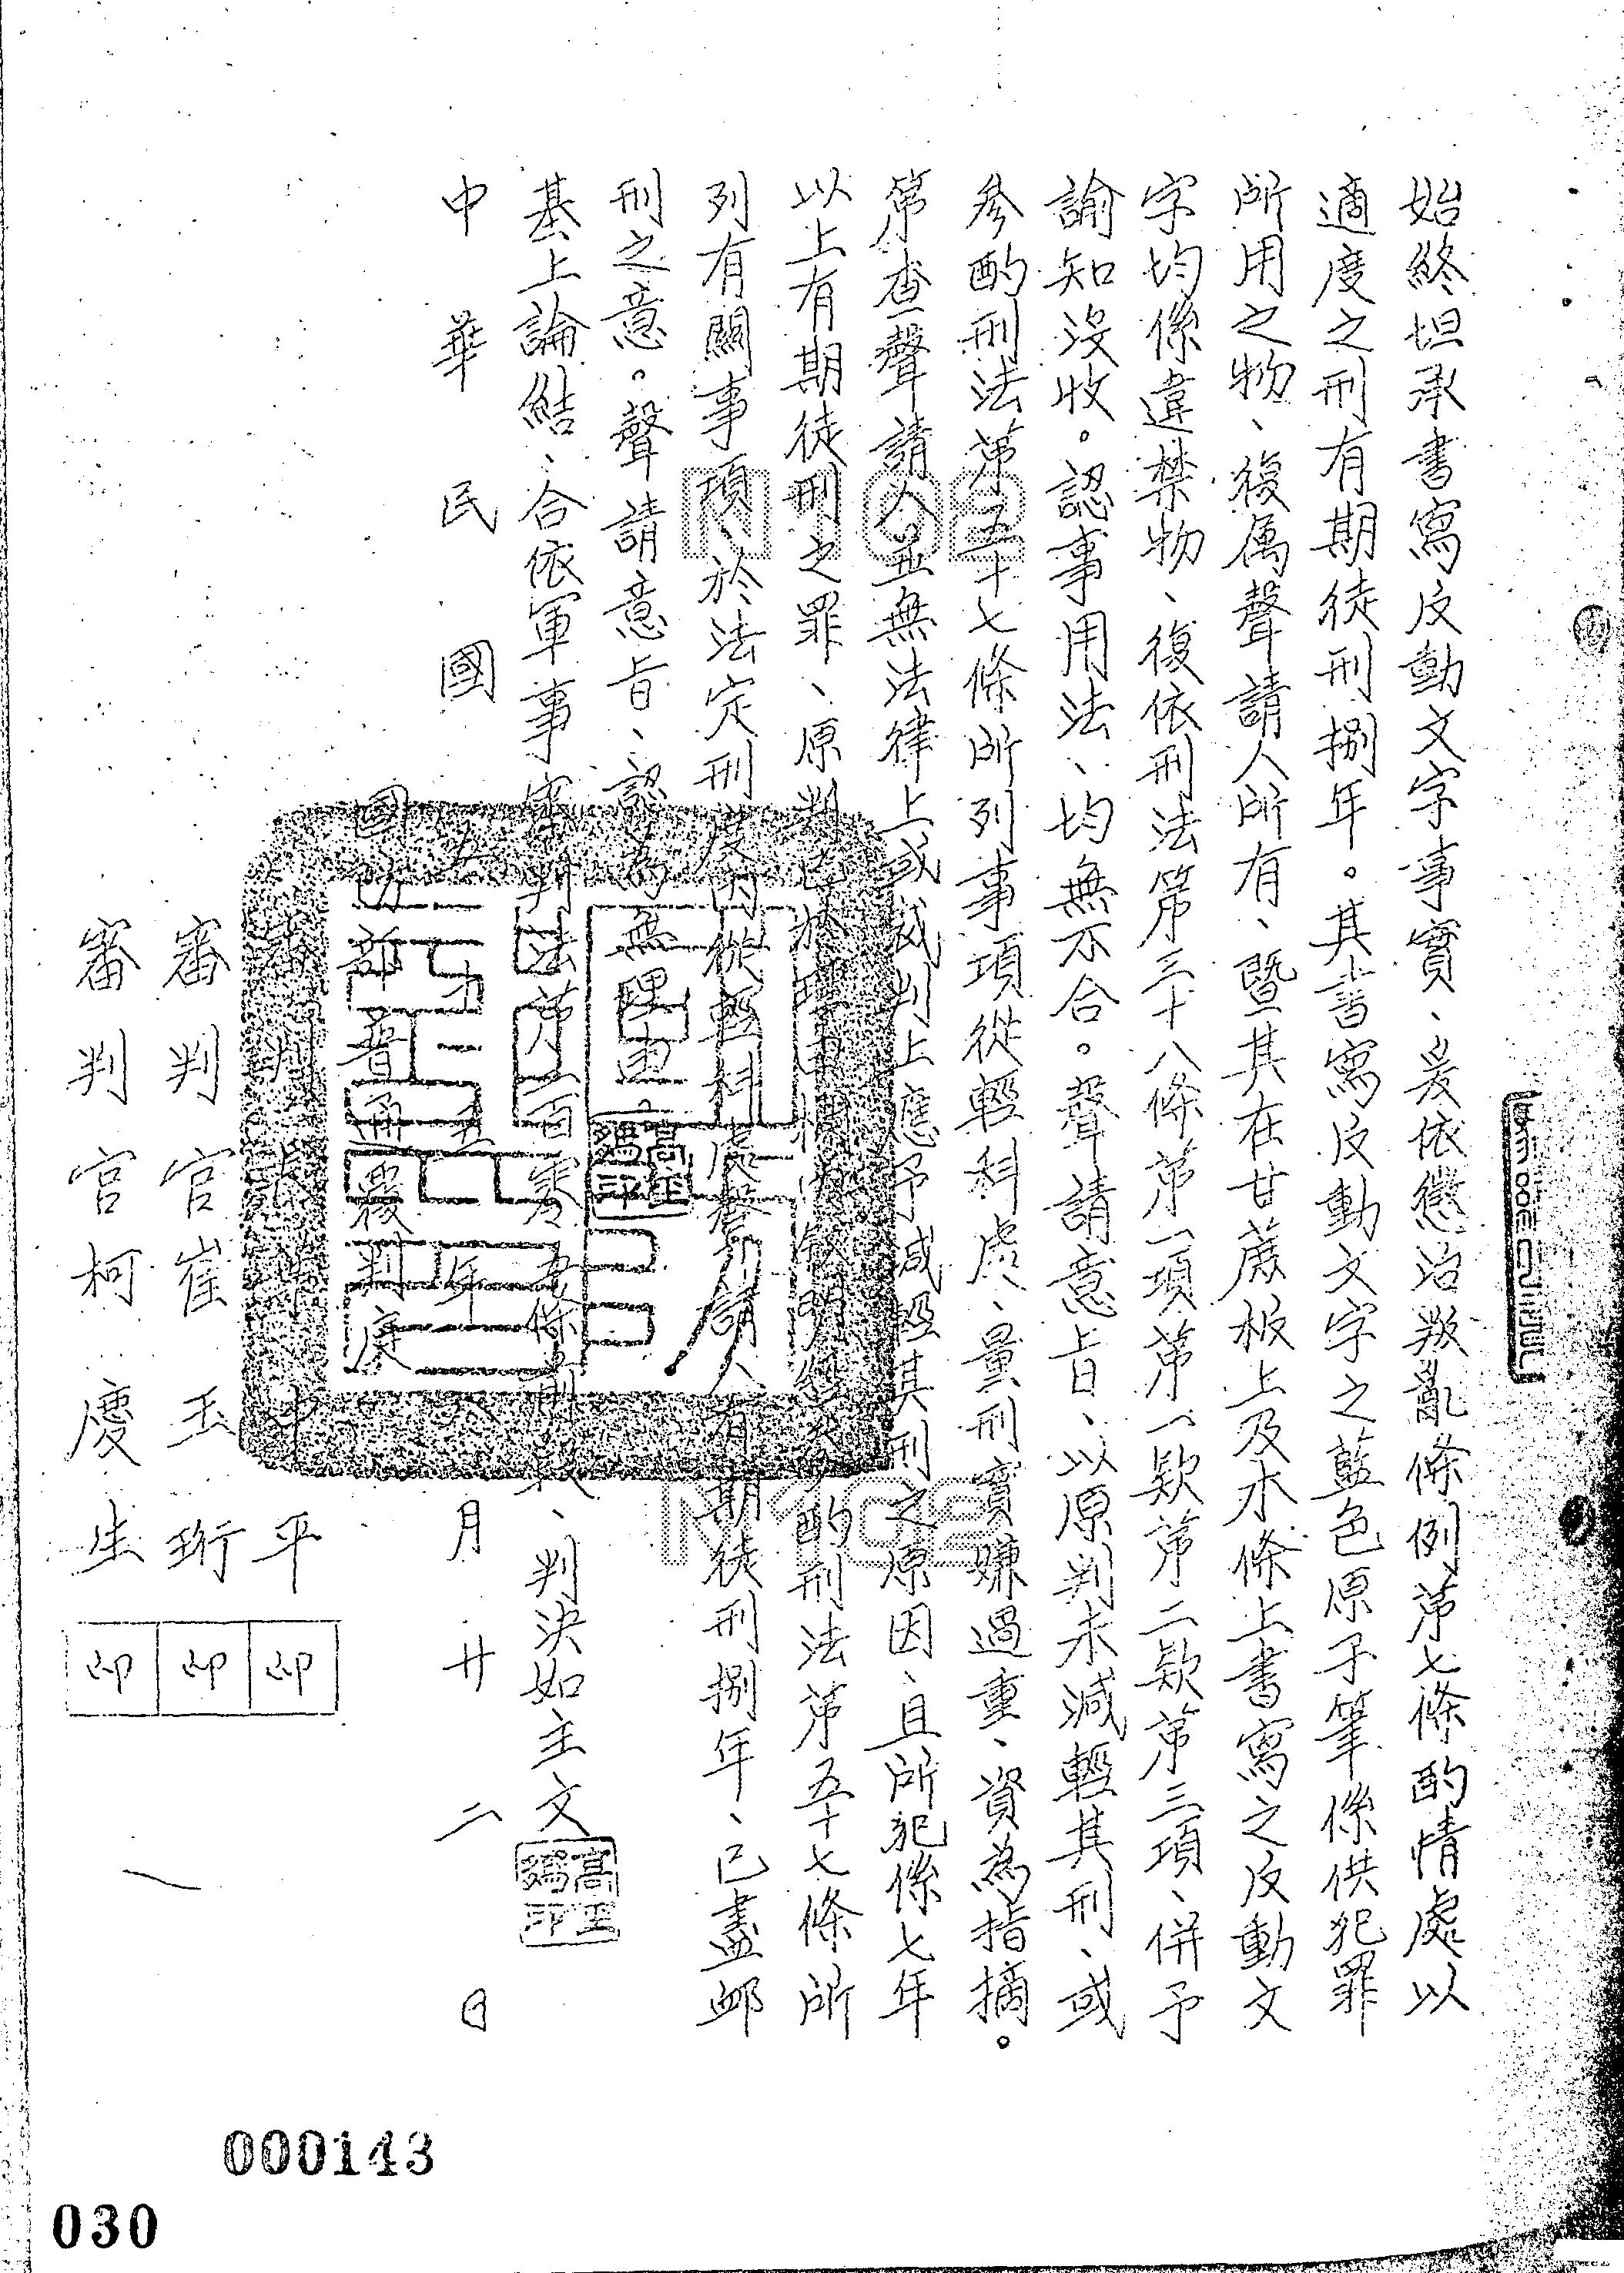 始終坦承書寫反動文字事實、爰依懲治叛亂條例第七條酌情處以
適度之刑有期徒刑捌年。其書寫反動文字之藍色原子筆係供犯罪
所用之物、復屬聲請人所有、暨其在甘蔗板上及木條上書寫之反動文
字均係違禁物、復依刑法第三十八條第一項第一款第二款第三項、併予
諭知沒收。認事用法、均無不合。聲請意旨、以原判未減輕其刑、或
參酌刑法第五十七條所列事項從輕科處、量刑實嫌過重、資為指摘。
第查聲請人並無法律上或裁判上應予減輕其刑之原因、且所犯係七年
以上有期徒刑之罪、原判已於理由欄內敘明經參酌刑法第五十七條所
列有關事項、於法定刑度內從輕科處聲請人有期徒刑捌年、已盡卹
刑之意。聲請意旨、認為無理由。
基上論結、合依軍事審判法第二百零五條前段、判決如主文
中華民國五十五年八月廿二日
國防部普通覆判庭
審判 平
審判官崔玉珩
審判官柯慶生
印 印 印
高玺鴻印
高玺鴻印
N102
N102
000143
030